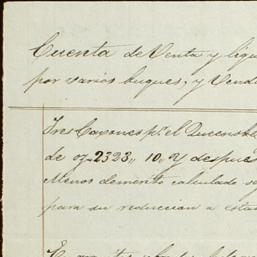 Cuenta de Venta y liqu
por varios buques, y Vend
Tres Caxones pr. el Queensb
de oz. 2323,, 10,, y despues
Menos demerito calculado
para su reduccion a esta